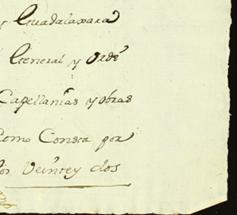 y Guadalaxara
General y Orde
Capellanias y obras
Como Consta por
por Veintey dos